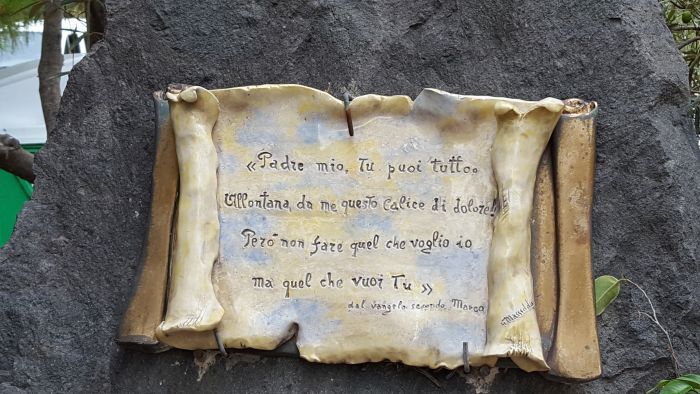 « Padre mio, Tu puoi tutto.
Allontana da me questo Calice di dolore!
Però non fare quel che voglio io
ma quel che vuoi Tu »
dal vangelo secondo Marco